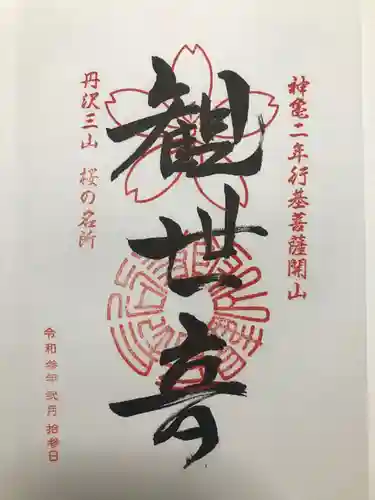 神亀二年行基菩薩開山
観世音
丹沢三山 桜の名所
令和参年弐月拾参日